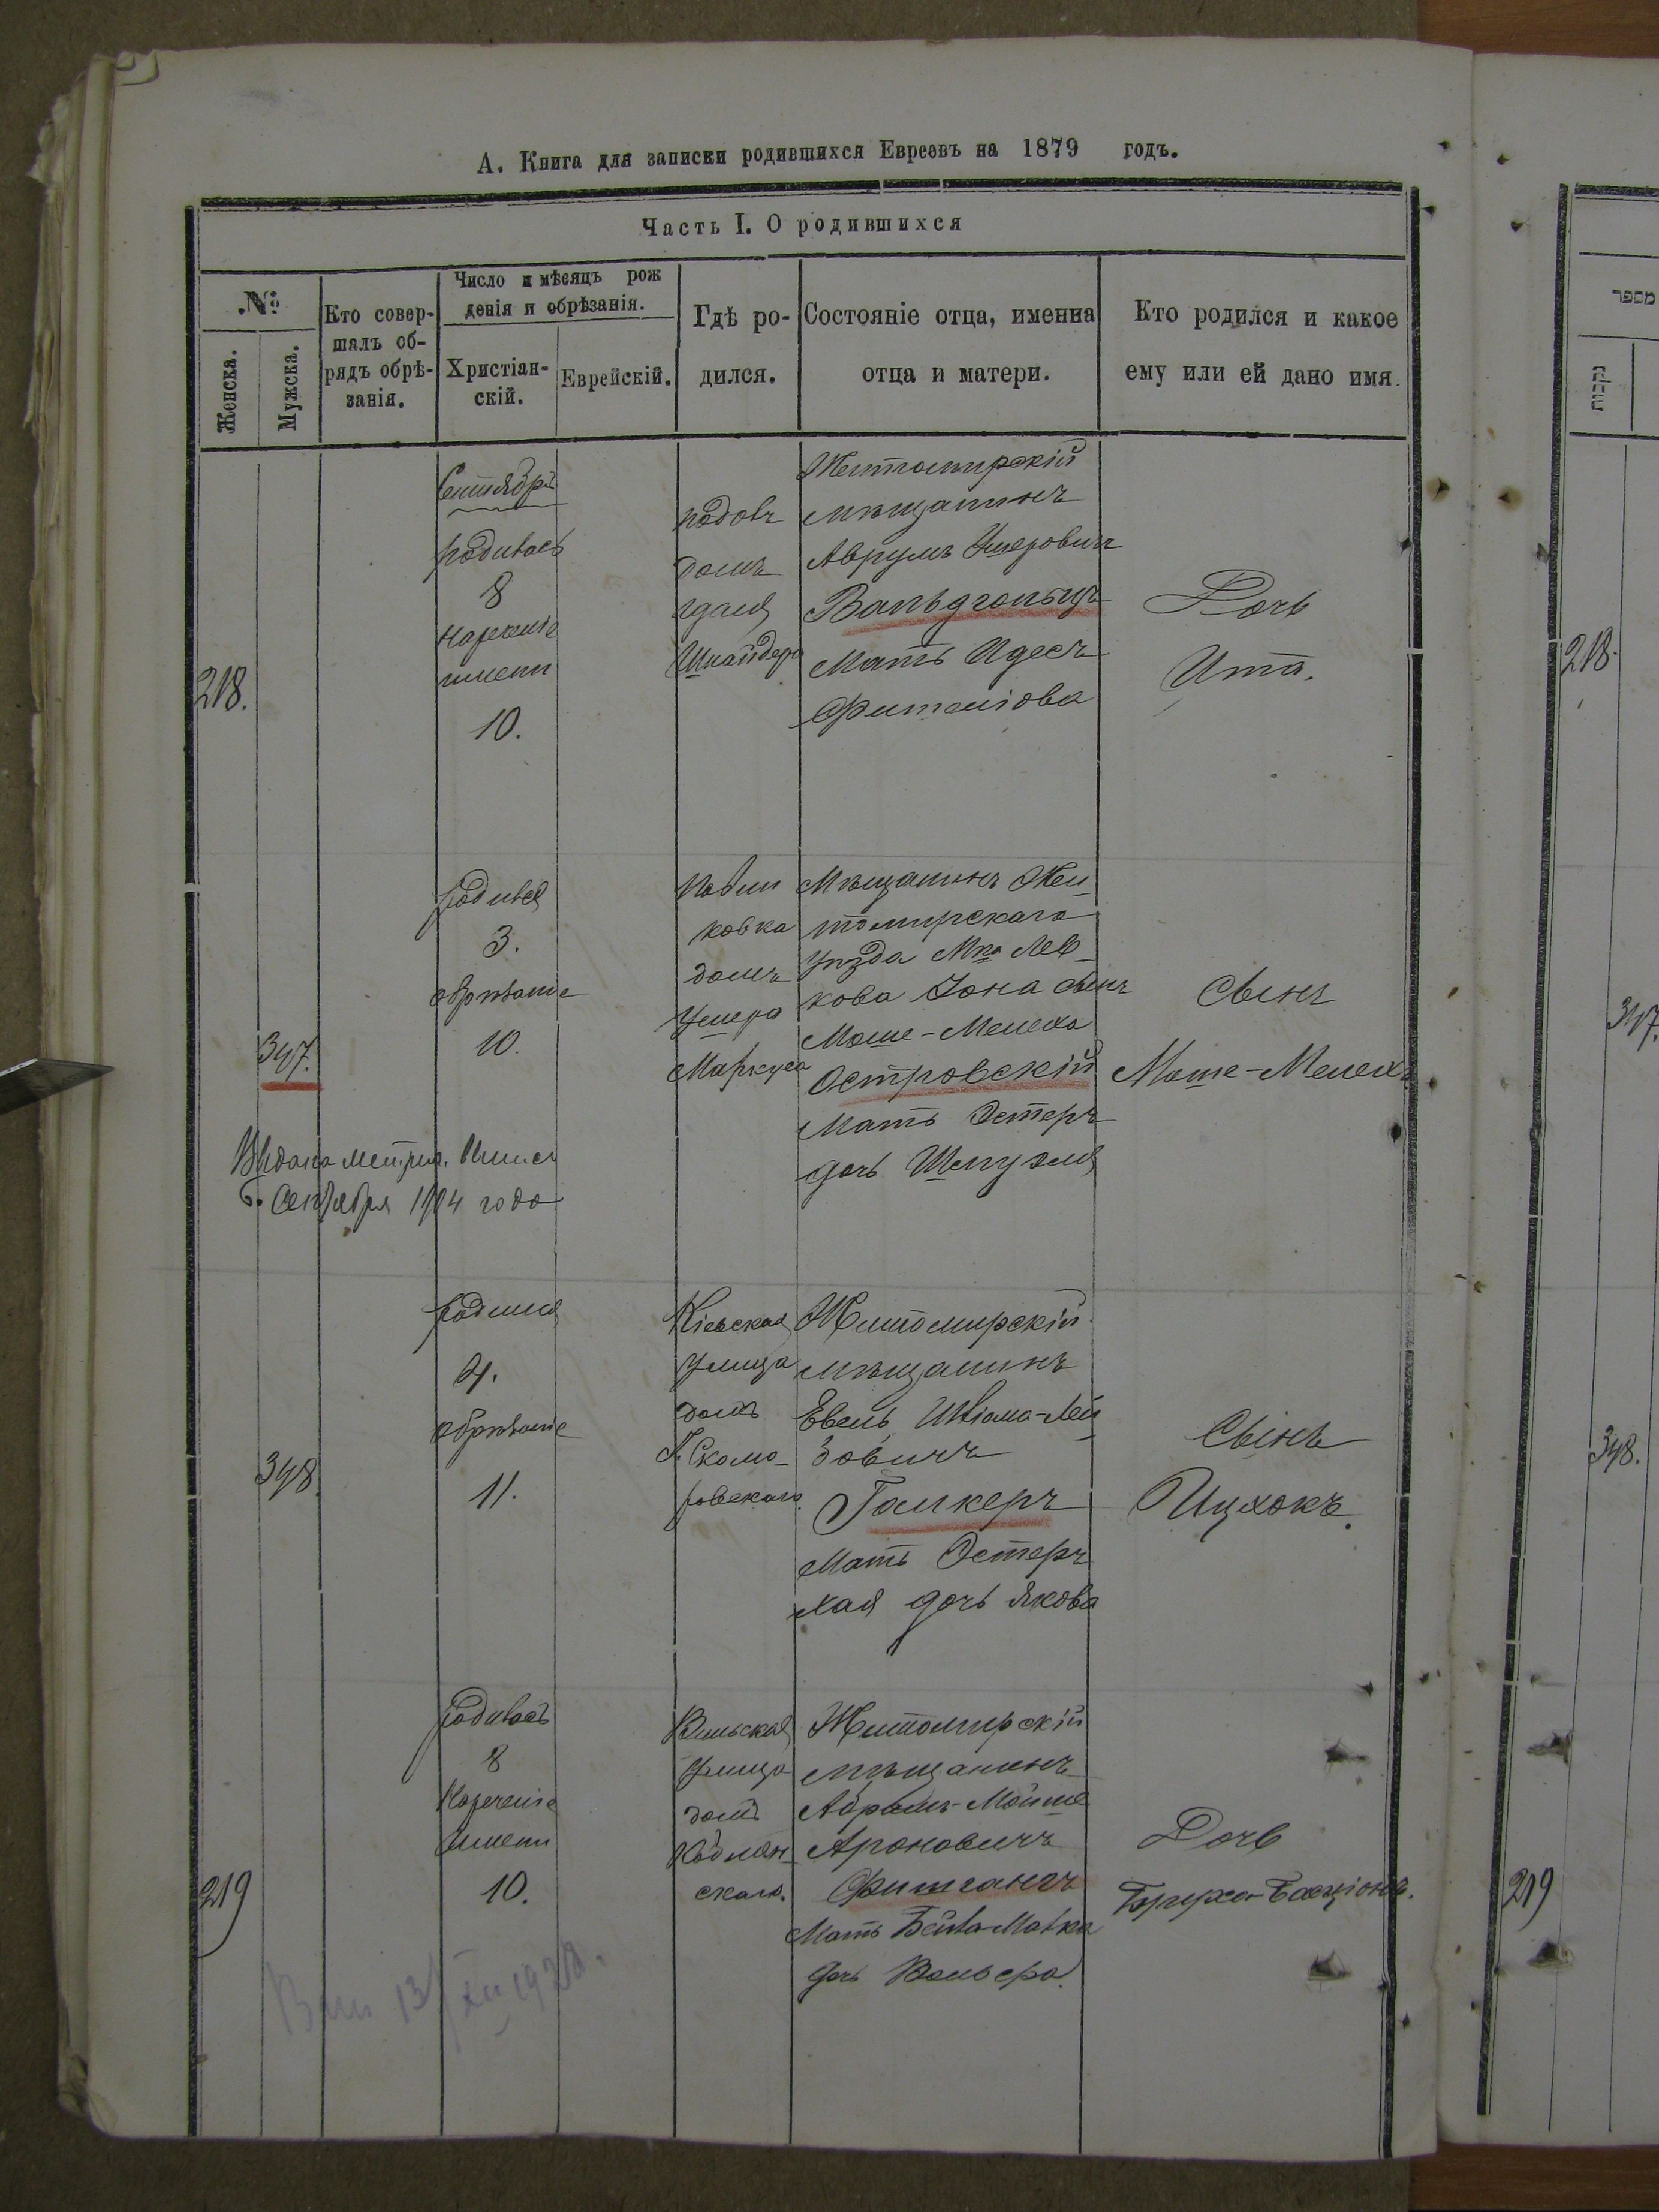 А. Книга для записки родившихся Евреевъ на 1879 годъ.
Часть I. О родившихся
№
Женска.
Мужска.
Кто совер-
шалъ об-
рядъ обрѣ-
занія.
Число и мѣсяцъ рож
денія и обрѣзанія.
Христіан-
скій.
Еврейскій.
Гдѣ ро-
дился.
Состояніе отца, именна
отца и матери.
Кто родился и какое
ему или ей дано имя.
218.
Сентябрь
родилась
8
нареженіе
имени
10.
домъ
Шнайдера
Житомирскій
мѣщанинъ
Аврумъ Ушеровичъ
Вальдгольцъ
Мать Идесъ
Дочь
Ита.
347.
родился
3.
обрѣзаніе
10.
ковка
домъ
Ушера
Маркуса
Мѣщанинъ Жи
томирскаго
уѣзда Мка Лев
кова Іона сынъ
Моше-Мелеха
Островскій
Мать Эстеръ
дочь Шмуэля
Сынъ
Моше-Мелехъ
Выдана метрич.
6. Сентября 1904 года
348.
родился
4.
обрѣзаніе
11.
Кіевская
улица
домъ
Скомо-
ровскаго.
Житомирскій
мѣщанинъ
Евель Шліома-Лей
зовичъ
Галкеръ
Мать Эстеръ
Хая дочь Якова
Сынъ
Ицхокъ.
219
родилась
8
Нареченіе
имени
10.
Вильская
улица
домъ
скаго.
Житомирскій
мѣщанинъ
Абрамъ-Мойше
Ароновичъ
Фишгангъ
Мать Бейла-Малка
дочь
Дочь
מספר
נקבות
218.
347.
348.
219